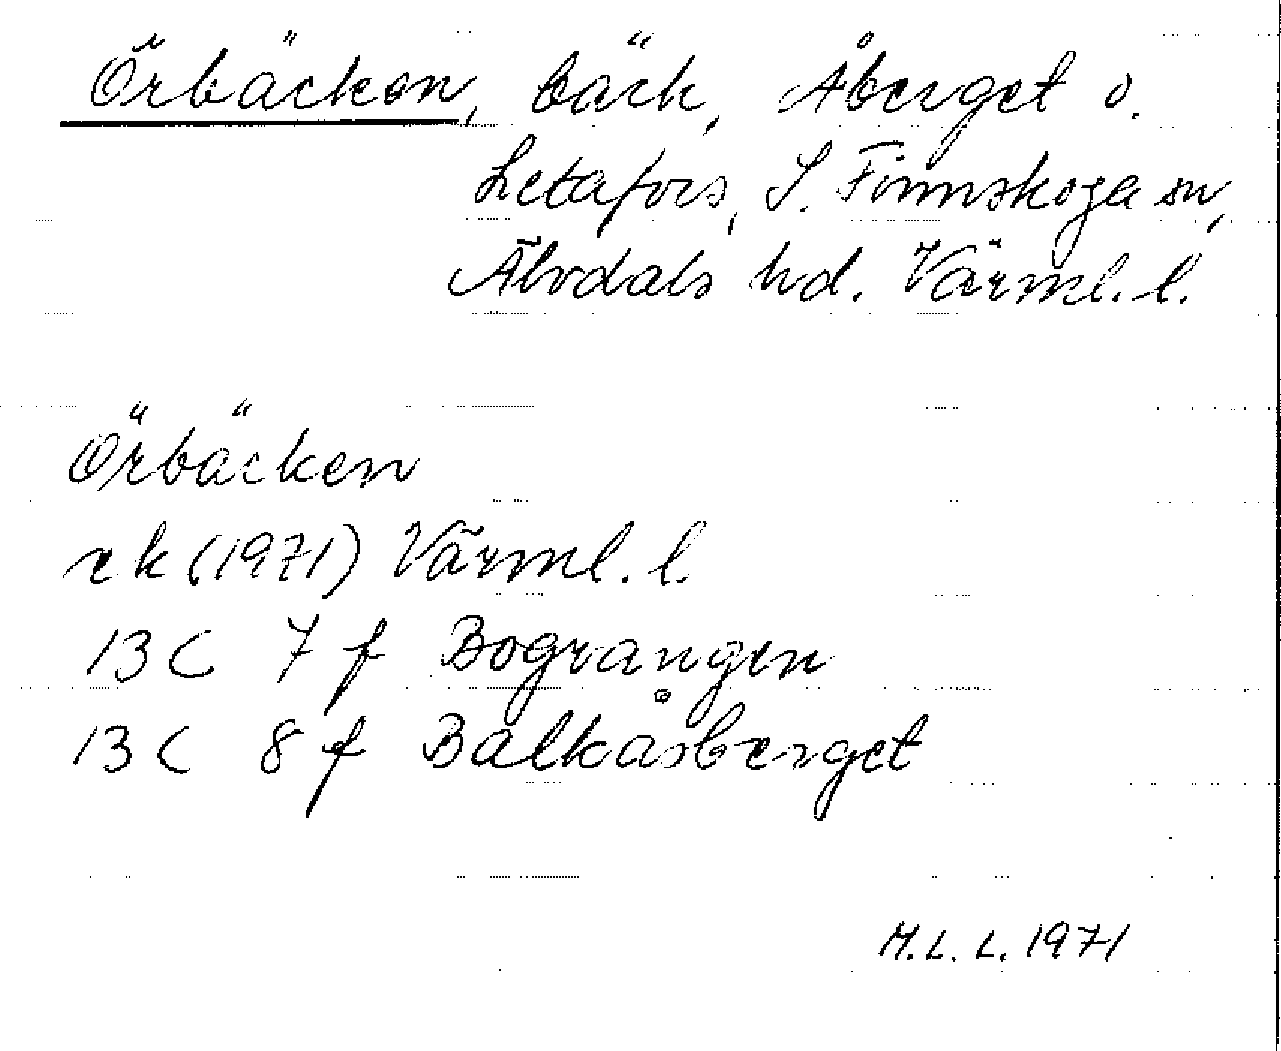 Örbäcken, bäck, Åberget o.
Letafors, S. Finnskoga sn,
Älvdals hd. Värml. l.
Örbäcken
ek (1971) Värml. l.
13C 7f Bograngen
13C 8f Balkåsberget
M.L.L. 1971